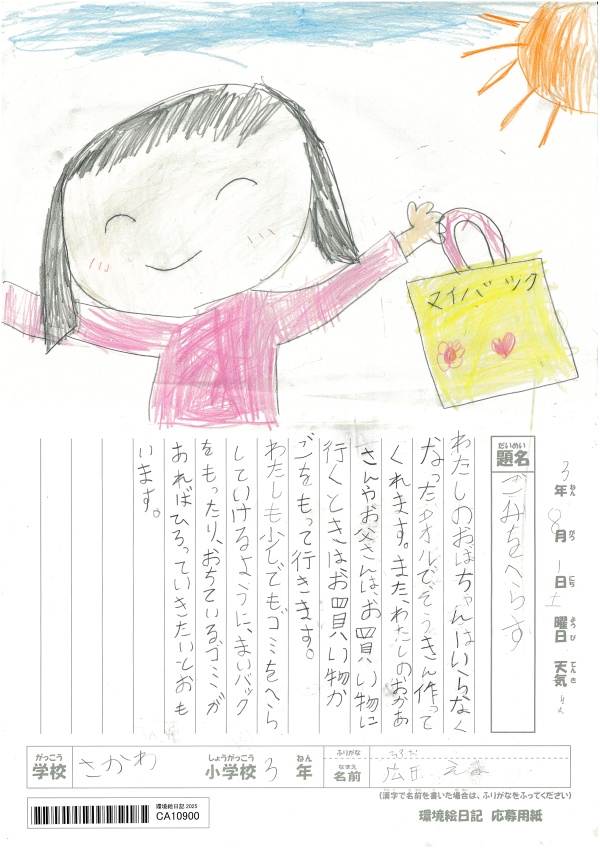 マイバック
3年ねん 8月がつ 1日にち 土曜日ようび 天気てんき
題名だいめい ごみをへらす
わたしのおばちゃんはいらなく
なったタオルでぞうきん作って
くれます。また、わたしのおかあ
さんやお父さんは、お買い物に
行くときは、お買い物か
ごをもって行きます。
わたしも少しでもゴミをへら
していけるように、まいバック
をもったり、おちているゴミが
あればひろっていきたいとおも
います。
学校がっこう さかわ 小学校しょうがっこう 3年ねん
ふりがな
名前なまえ 広田 えま
(漢字で名前を書いた場合は、ふりがなをふってください)
環境絵日記 2025
CA10900
環境絵日記 応募用紙